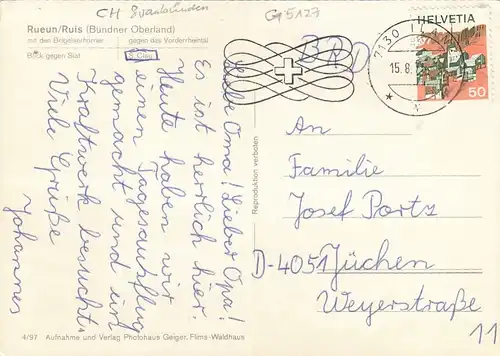 CH Graubünden
G 5127
Rueun/Ruis (Bündner Oberland)
mit den Brigelerhörner gegen das Vorderrheintal
Blick gegen Siat
HELVETIA
50
7130
15.8.
BRD
Liebe Oma! Lieber Opa!
Es ist herrlich hier.
Heute haben wir
einen Tagesausflug
gemacht und ein
Kraftwerk besucht.
Viele Grüße
Johannes
Reproduktion verboten
An
Familie
Josef Portz
D-4051 Jüchen
Weyerstraße
11
4/97 Aufnahme und Verlag Photohaus Geiger, Flims-Waldhaus